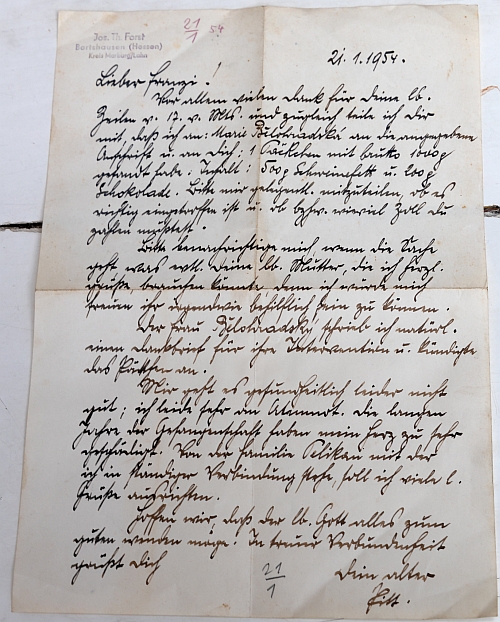 Jos. Th. Forst
Bartshausen (Hessen)
Kreis Marburg/Lahn
21/1 54
21.1.1954.
Lieber Franzi!
Vor allem vielen Dank für Deine lb.
Zeilen v. 17. v. Mts. und zugleich teile ich Dir
mit, daß ich an: Marie an die angegebene
Anschrift u. an Dich: 1 Päckchen mit brutto 1000g
gesandt habe. Inhalt: 500g Schweinefett u. 200g
Schokolade. Bitte mir gelegentl. mitzuteilen, ob es
richtig eingetroffen ist u. ob bzhw. wieviel Zoll Du
zahlen mußtest.
Bitte benachrichtige mich wenn die Sache
geht was evtl. Deine lb. Mutter, die ich herzl.
grüße, brauchen könnte, denn ich würde mich
freuen ihr irgendwie behilflich sein zu können.
Der Frau schrieb ich natürl.
einen Dankbrief für ihre Intervention u. kündigte
das Päckchen an.
Mir geht es gesundheitlich leider nicht
gut; ich leide sehr an Atemnot. Die langen
Jahre der Gefangenschaft haben mein Herz zu sehr
geschädigt. Von der Familie Pelikan mit der
ich in ständiger Verbindung stehe, soll ich viele l.
Grüße ausrichten.
Hoffen wir, daß der lb. Gott alles zum
guten wenden möge. In treuer Verbundenheit
grüßt Dich
Dein alter
21/1